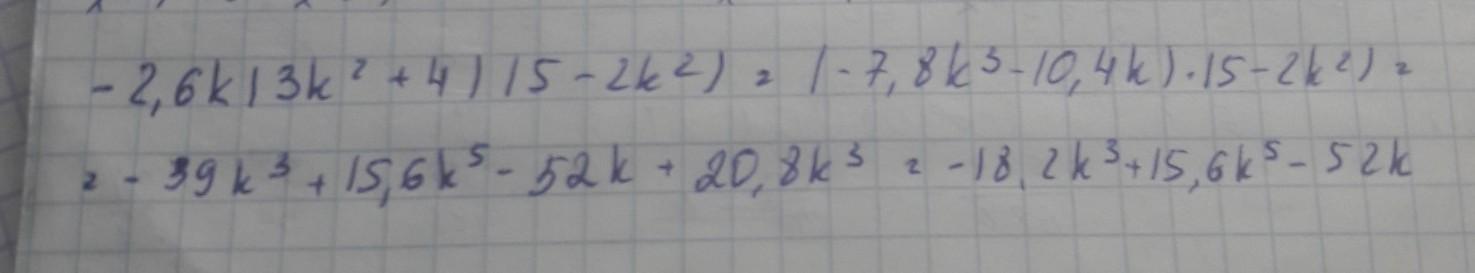 -2,6k(3k² + 4)(5 - 2k²) = (-7,8k³ - 10,4k)·(5 - 2k²) =
= -39k³ + 15,6k⁵ - 52k + 20,8k³ = -18,2k³ + 15,6k⁵ - 52k